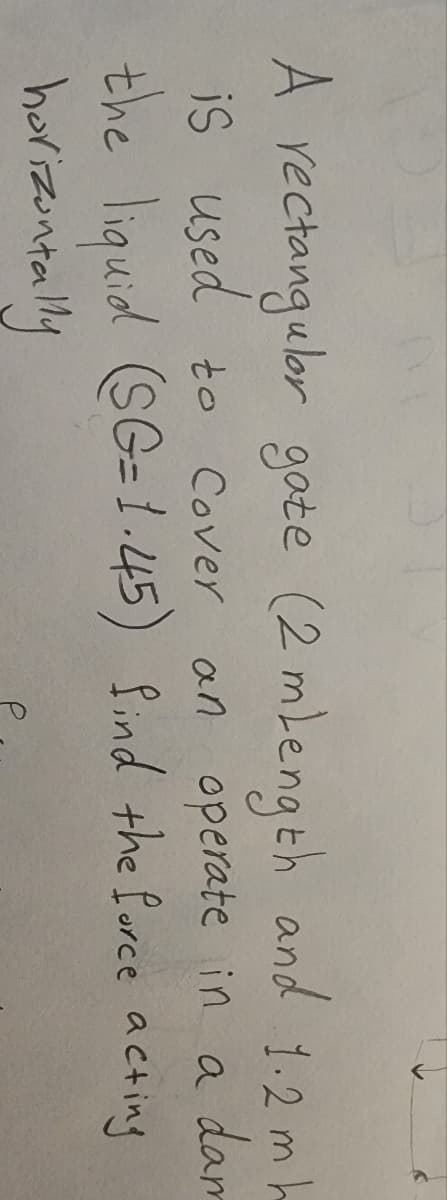 A rectangular gate (2 mLength and 1.2 m h
is used to Cover an operate in a dam
the liquid (SG=1.45) find the force acting
horizontally